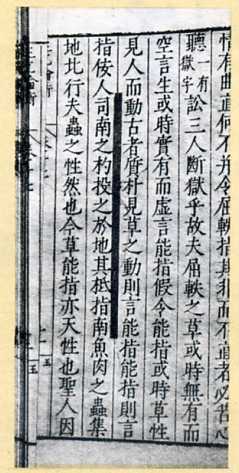 情有曲直何不并令屈軼指其非而不直者必苦心
聽一有獄字訟三人斷獄乎故夫屈軼之草或時無有而
空言生或時實有而虛言能指假令能指或時草性
見人而動古者質朴見草之動則言能指能指則言
指佞人司南之杓投之於地其柢指南魚肉之蟲集
地比行夫蟲之性然也今草能指亦天性也聖人因
五